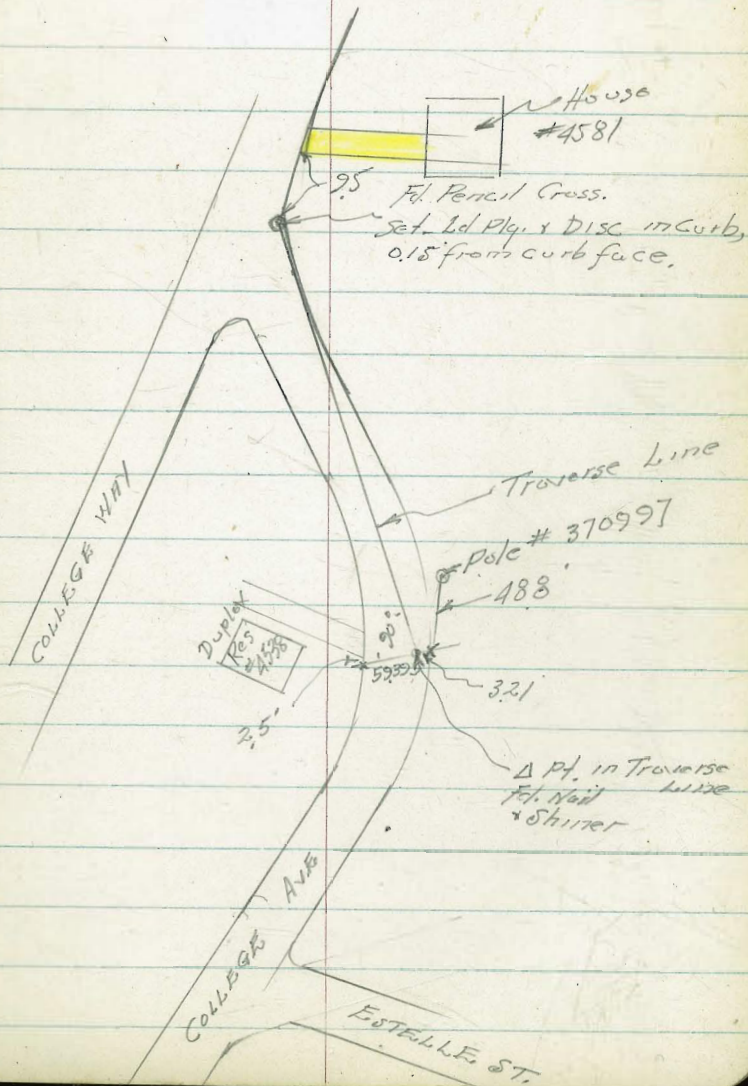 House
#4581
95
Fd. Pencil Cross.
Set. Ld Plg. & Disc in Curb,
0.15 from curb face.
Traverse Line
Pole # 370997
488
COLLEGE WAY
Duplex
Res
90°
59.39
321
2.5
Δ Pt. in Traverse
Line
Fd. Nail
& Shiner
COLLEGE AVE
ESTELLE ST.